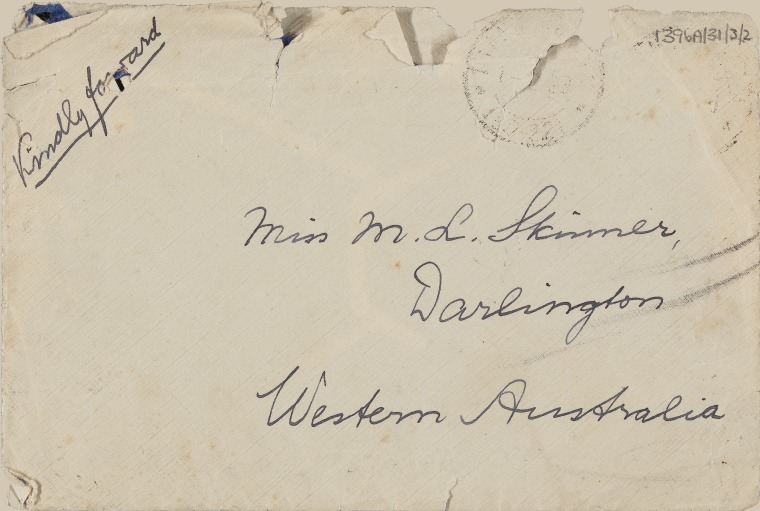 Kindly forward
1396A/31/3/2
Miss M. L. Skinner,
Darlington
Western Australia